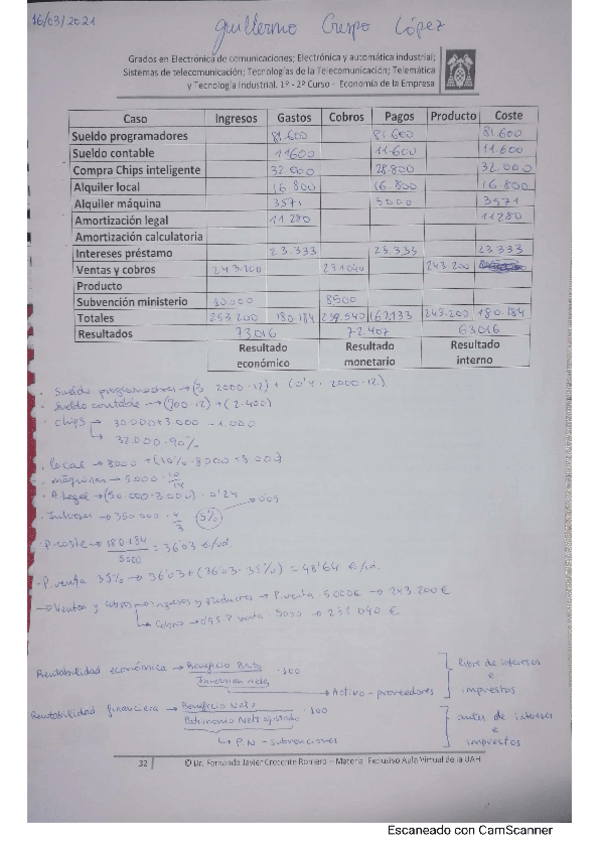 16/03/2021
Guillermo Crespo López
Grados en Electrónica de comunicaciones; Electrónica y automática industrial;
Sistemas de telecomunicación; Tecnologías de la Telecomunicación; Telemática
y Tecnología Industrial. 1º - 2º Curso - Economía de la Empresa
Caso Ingresos Gastos Cobros Pagos Producto Coste
Sueldo programadores 81.600 81.600 81.600
Sueldo contable 11.600 11.600 11.600
Compra Chips inteligente 32.000 28.800 32.000
Alquiler local 16.800 16.800 16.800
Alquiler máquina 3571 5000 3571
Amortización legal 11280 11280
Amortización calculatoria
Intereses préstamo 23.333 23.333 23.333
Ventas y cobros 243.200 231040 243.200
Producto
Subvención ministerio 10.000 8500
Totales 253.200 180.184 239.540 167.133 243.200 180.184
Resultados 73016 72.407 63016
Resultado económico Resultado monetario Resultado interno
· Sueldo programadores → (3 · 2000 · 12) + (0'4 · 2000 · 12)
· Sueldo contable → (700 · 12) + (2.400)
· chips → 30.000 + 3.000 - 1.000
↳ 32.000 · 90%
· local →
· A. Legal → 0'24
· Intereses → 350.000 · 4/3 5% → 0'05
· P. coste → 180184/5000 = 36'03 €/ud
· P. venta 35% → 36'03 + (36'03 · 35%) = 48'64 €/ud.
→ Ventas y cobros ingresos y productos → P. venta · 5.000 € → 243.200 €
↳ Cobro → 0'95 P venta · 5000 → 231 040 €
Rentabilidad económica → Beneficio Bruto / Inversión neta · 100
→ Activo - proveedores
libre de intereses
e
impuestos
Rentabilidad financiera → Beneficio Neto / Patrimonio Neto ajustado · 100
↳ P.N - subvenciones
antes de intereses
e
impuestos
32 © Dr. Fernando Javier Crecente Romero – Material Exclusivo Aula Virtual de la UAH
Escaneado con CamScanner